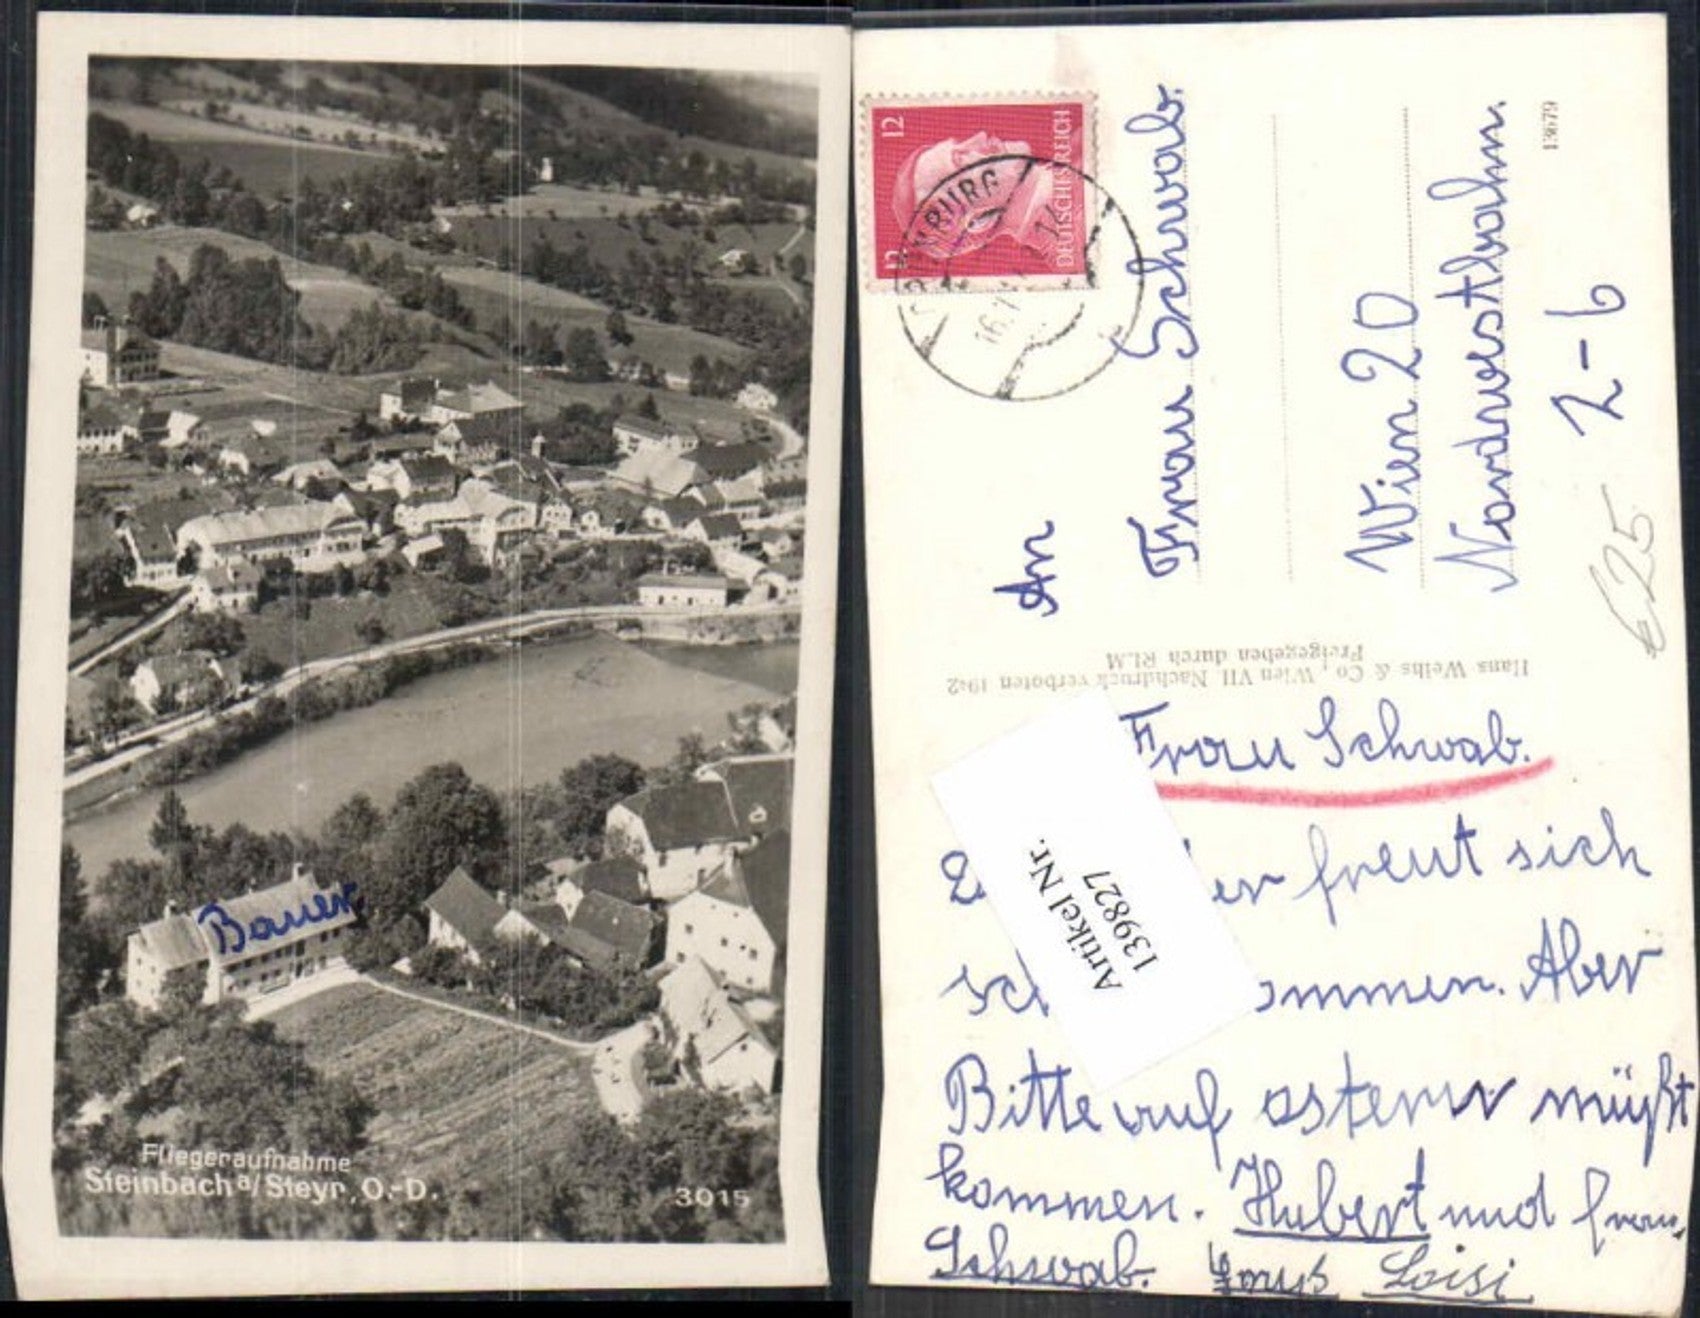 Bauer
Fliegeraufnahme
Steinbach a/Steyr, O.-D.
3015
12
12
DEUTSCHES REICH
16.
An
Frau Schwab.
Wien 20
Nordwestbahn
2-6
13679
€25
Hans Weihs & Co., Wien VII. Nachdruck verboten 1942
Freigegeben durch RLM
Frau Schwab.
Artikel Nr.
139827
er freut sich
ommen. Aber
Bitte auf ostern müßt
kommen. Hubert und frau
Schwab. Loisi